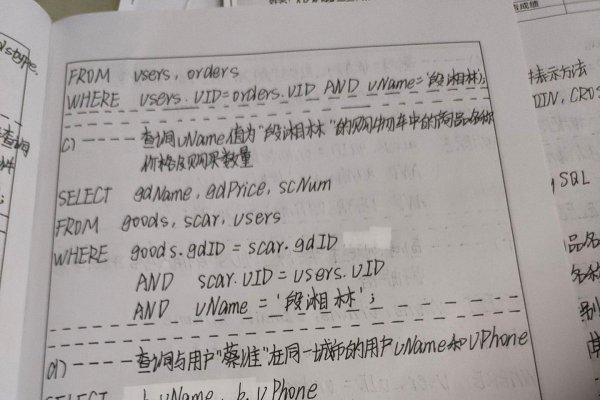 FROM users, orders
WHERE users.UID=orders.UID AND uName='段湘林';
c) ----- 查询uName值为"段湘林"的购物车中的商品名称
价格及购买数量
SELECT gdName, gdPrice, scNum
FROM goods, scar, users
WHERE goods.gdID = scar.gdID
AND scar.UID = users.UID
AND uName = '段湘林';
d) ----- 查询与用户"蔡准"在同一城市的用户uName和UPhone
SELECT b.uName, b.uPhone
表示方法
SQL